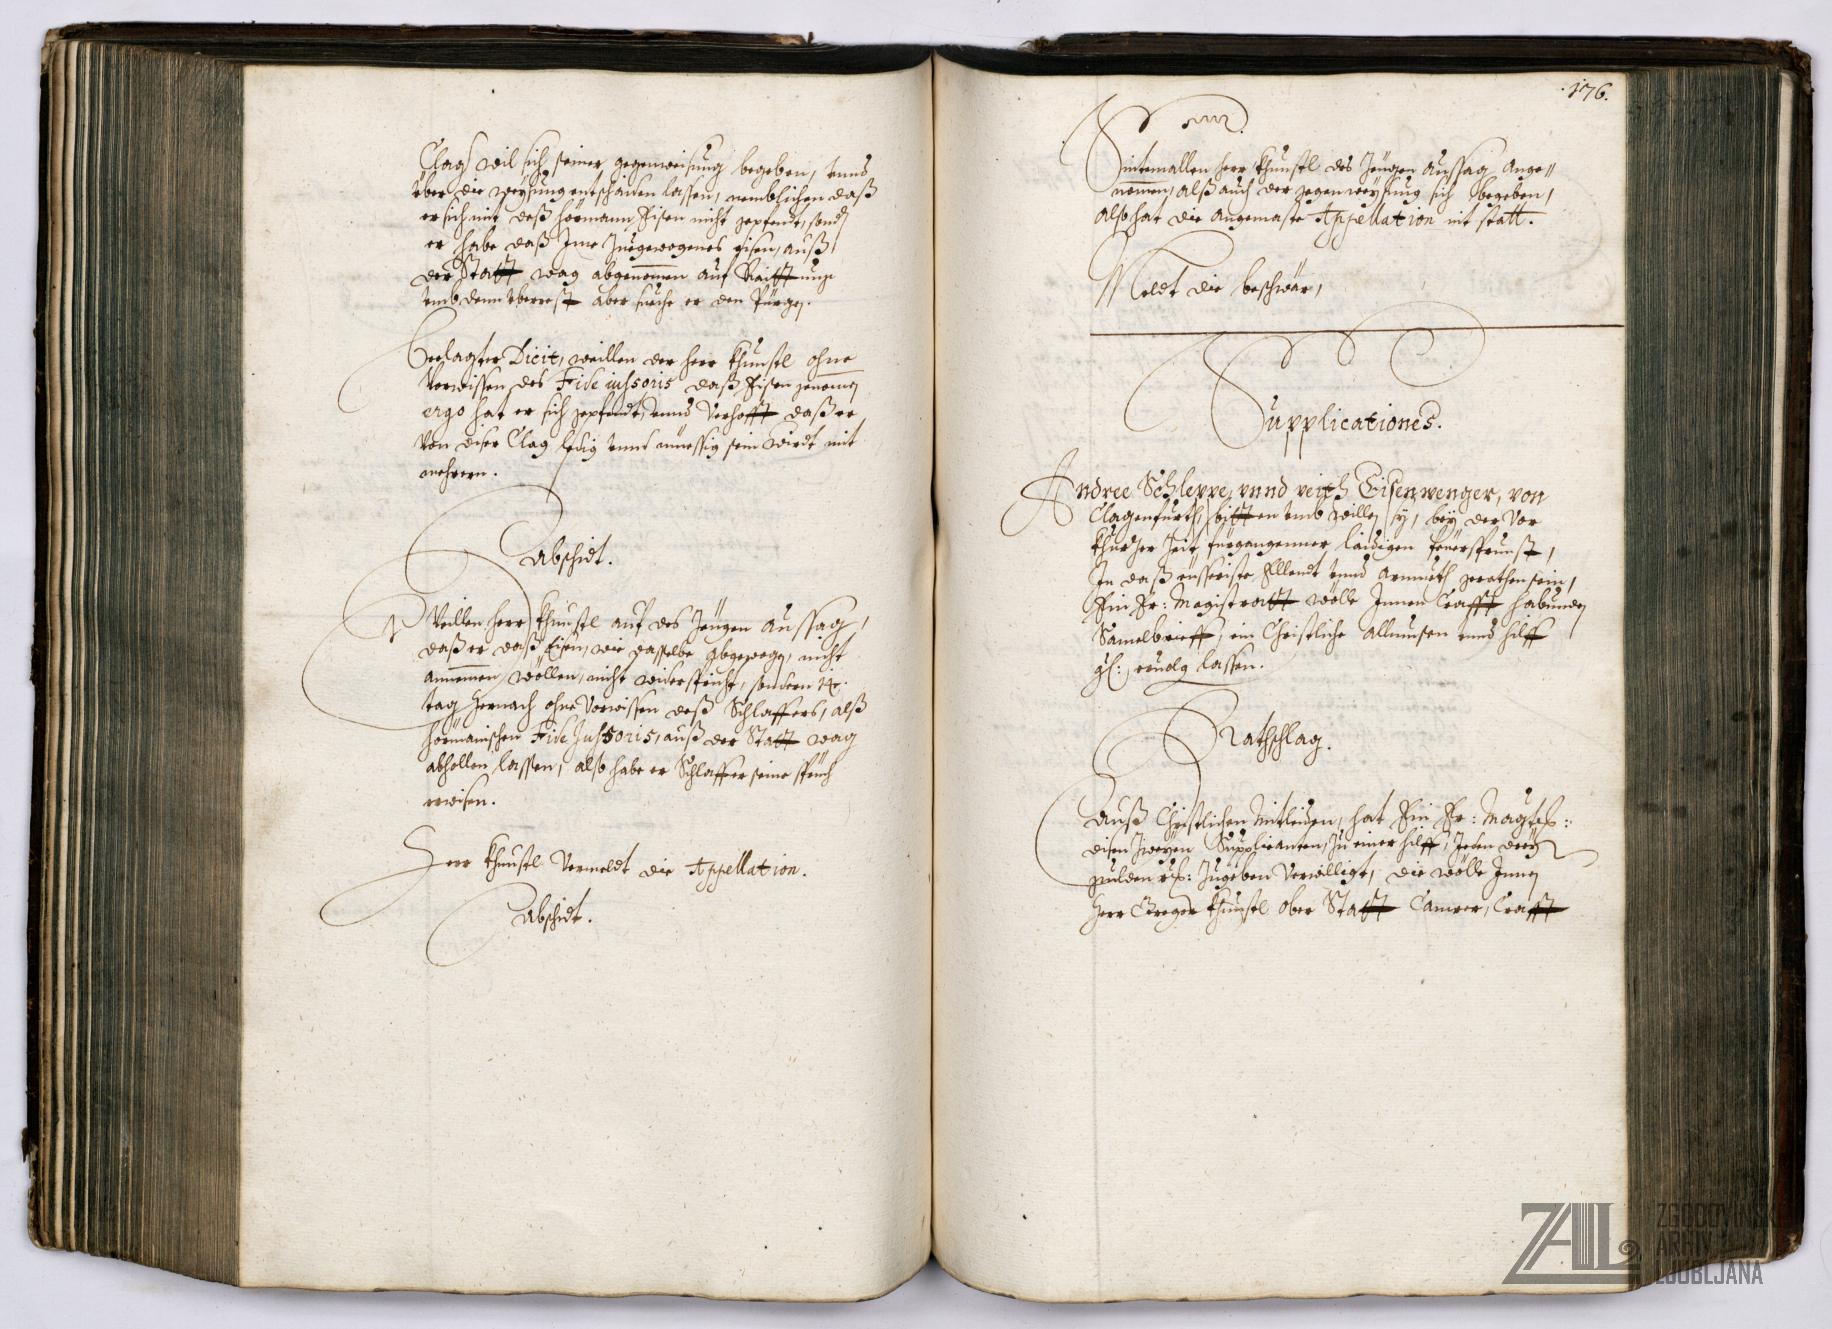 Clag, wil sich seiner gegenweisung begeben, vnnd
über die weysung entschaiden lassen, nemblichen daß
er sich mit deß Hörmann Eisen nicht gepfendt, sond
er habe daß Ime Zuegewogenes eisen, auß
der Statt wag abgenomen auf Raittung
vmb denn vberrest aber suche er den Pürgen.
Beclagter Dicit, weillen der herr Khunstl ohne
Vorwissen des Fideiussoris daß Eisen genomen
ergo hat er sich gepfendt, vnnd Verhofft daß er
von diser Clag ledig vnnd müessig sein wirdt mit
mehrern.
Abschidt.
Weillen herr Khunstl auf des Zeugen aussag,
daß er daß Eisen, wie dasselbe abgewegen, nicht
annemmen wöllen, nicht widerspricht, sondern 14.
tag hernach ohne Vorwissen deß Schlaffers, alß
Hörmannischen Fideiussoris, auß der Statt wag
abhollen lassen, also habe er Schlaffer seine sprüch
erwisen.
Herr Khunstl Vermeldt die Appellation.
Abschidt.
176.
Sintemallen herr Khunstl des Zeugen aussag ange=
nommen, alß auch der gegenweysung sich begeben,
also hat die angemaste Appellation nit statt.
Meldt die beschwär,
Supplicationes.
Andree Schleppe, vnnd veith Eisenwenger, von
Clagenfurth, bitten vmb willen sy, bey der Vor
Khurzer Zeit fürgangenner laidigen feüersprunst,
In daß eüsseriste Ellendt vnnd armueth gerathen sein,
Ein Er: Magistratt wölle Innen Crafft habunden
Samelbrieff, ein Christliche Allmusen vnnd hilff
gl: eruolg lassen.
Rathschlag.
Auß Christlichen Mitleiden, hat Ein Er: Magtß:
disen Zweyen Supplicanten, zu einer hilff, Jeden drey
gulden rß: Zugeben Verwilligt, die wölle Innen
Herr Greger Khunstl ober Statt Camrer, Crafft
ZAL
ZGODOVINSKI
ARHIV
LJUBLJANA